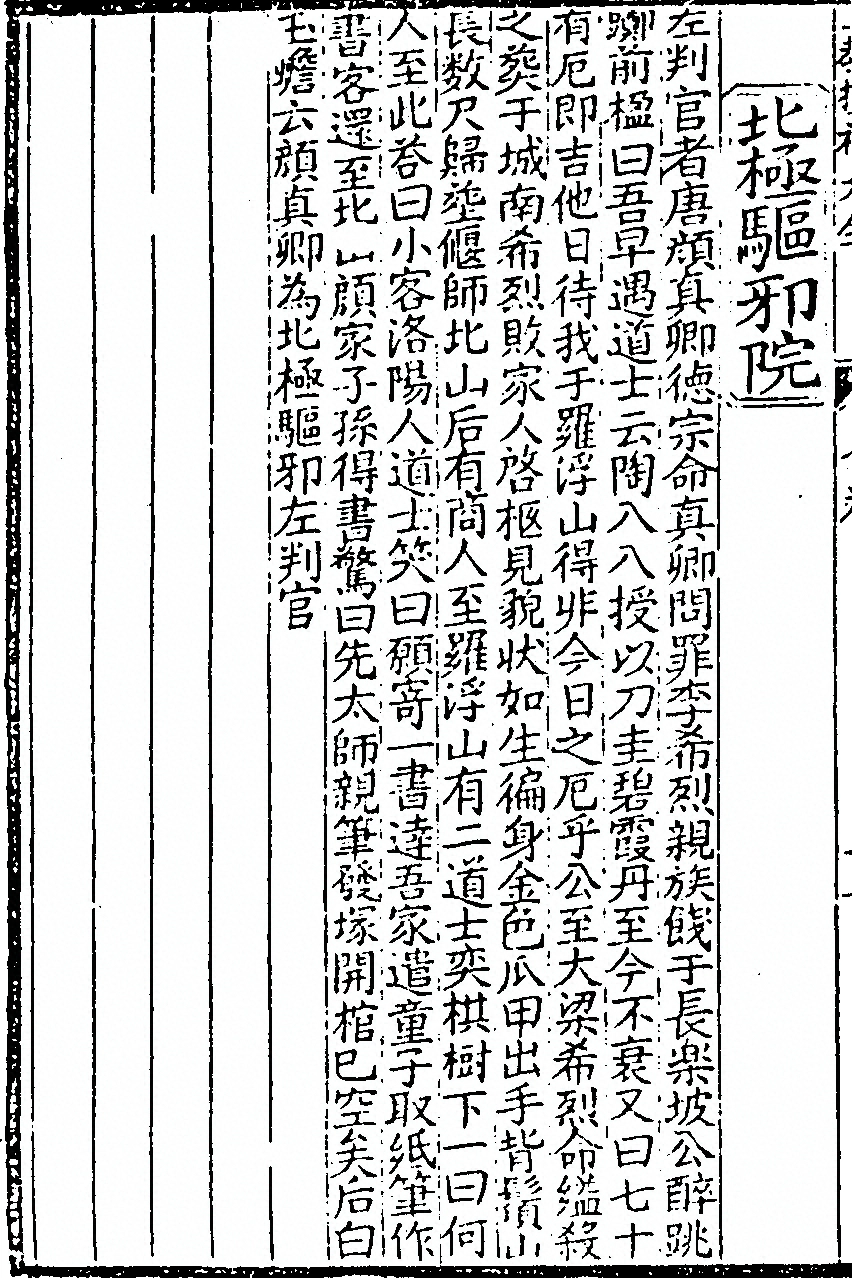 北極驅邪院
左判官者唐顔真卿德宗命真卿問罪李希烈親族餞于長楽坡公醉跳
躑前楹曰吾早遇道士云陶八八授以刀圭碧霞丹至今不衰又曰七十
有厄即吉他日待我于羅浮山得非今日之厄乎公至大梁希烈命縊殺
之葬于城南希烈敗家人啓柩見貌状如生徧身金色爪甲出手背鬚
長数尺歸塟偃師北山后有啇人至羅浮山有二道士奕棋樹下一曰何
人至此荅曰小客洛陽人道士笑曰願寄一書達吾家遣童子取紙筆作
書客還至北山顔家子孫得書驚曰先太師親筆發塚開棺已空矣后白
玉蟾云顔真卿為北極驅邪左判官